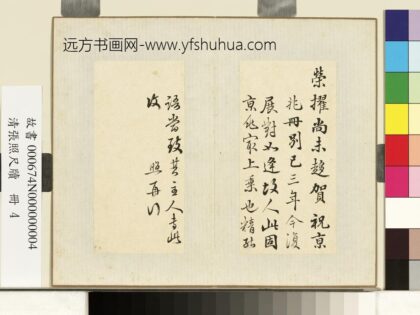 远方书画网-www.yfshuhua.com
榮擢尚未趨賀祝京
兆冊別已三年今復
展對如逢故人此固
京兆最上乘也精
語當致其主人者此
照再行
故書 000674N000000004
清張照尺牘 冊 4